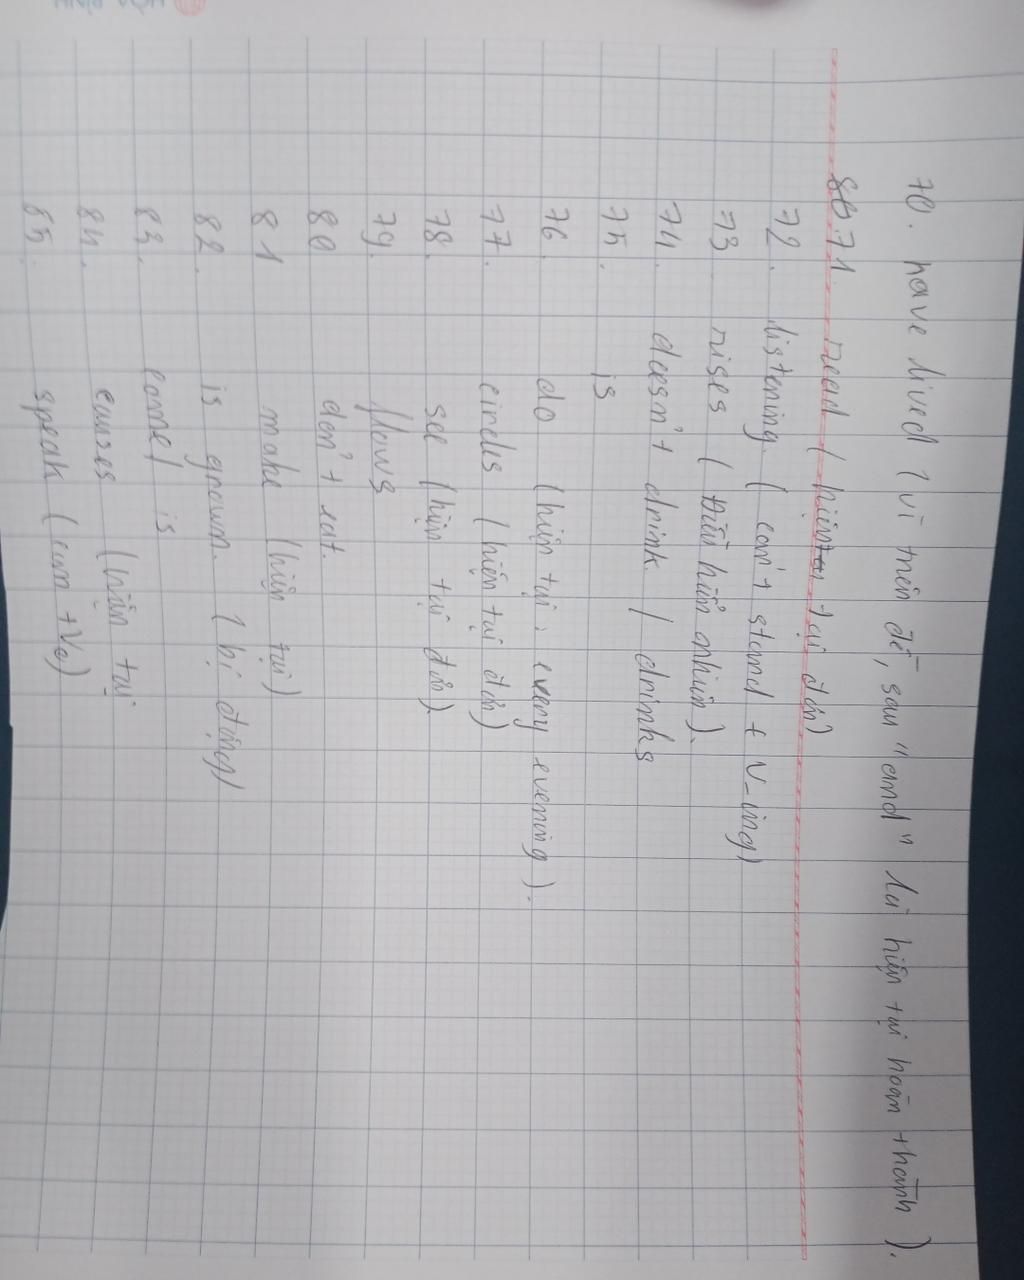 70. have lived (vì mệnh đề, sau "and" là hiện tại hoàn thành).
71. read (hiện tại đơn)
72. listening. (can't stand + V-ing)
73 rises (hiển nhiên).
74. doesn't drink / drinks
75. is
76. do (hiện tại, every evening).
77. circles (hiện tại đơn)
78. see (hiện tại đơn).
79. flows
80 don't eat.
81 make (hiện tại)
82. is grown. (bị động)
83. come / is
84. causes (hiện tại
85. speak (can + Vo)